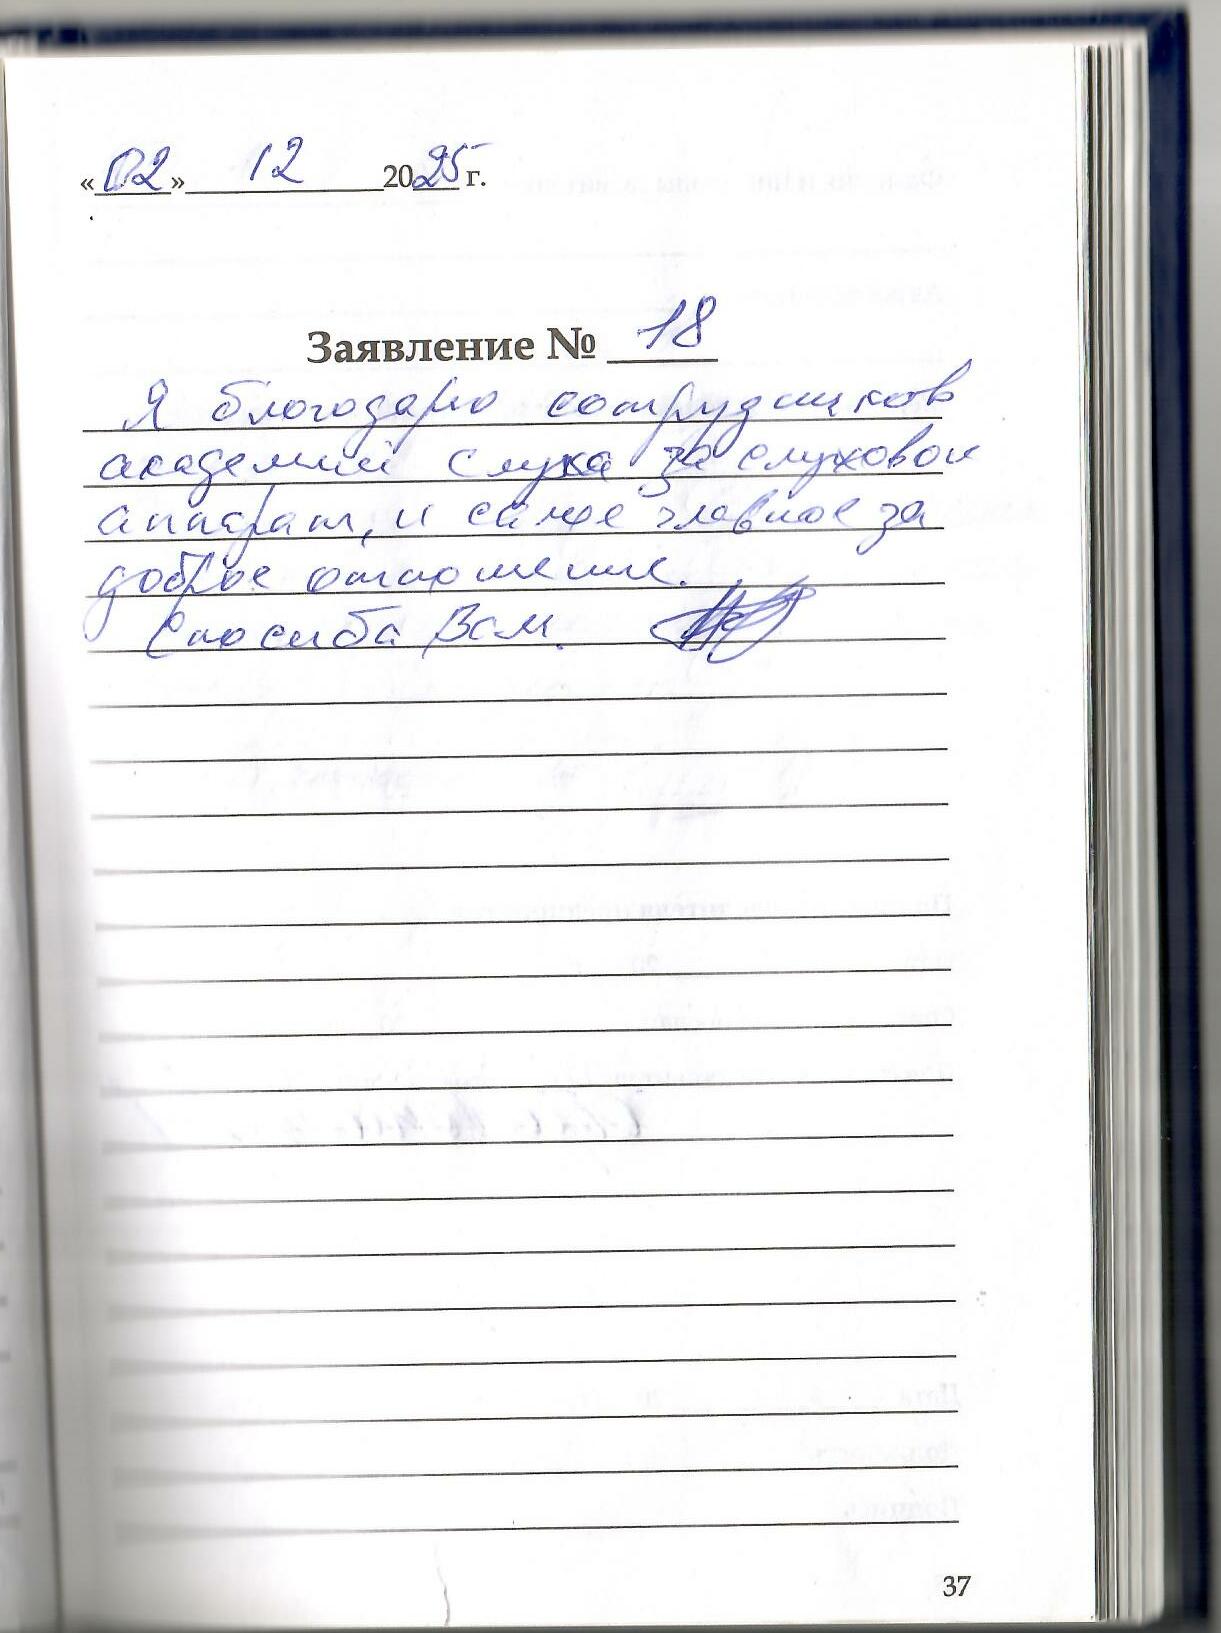 «02» 12 2025 г.
Заявление № 18
Я благодарю сотрудников
академии слуха за слуховой
аппарат, и самое главное за
доброе отношение.
Спосиба Вам.
37